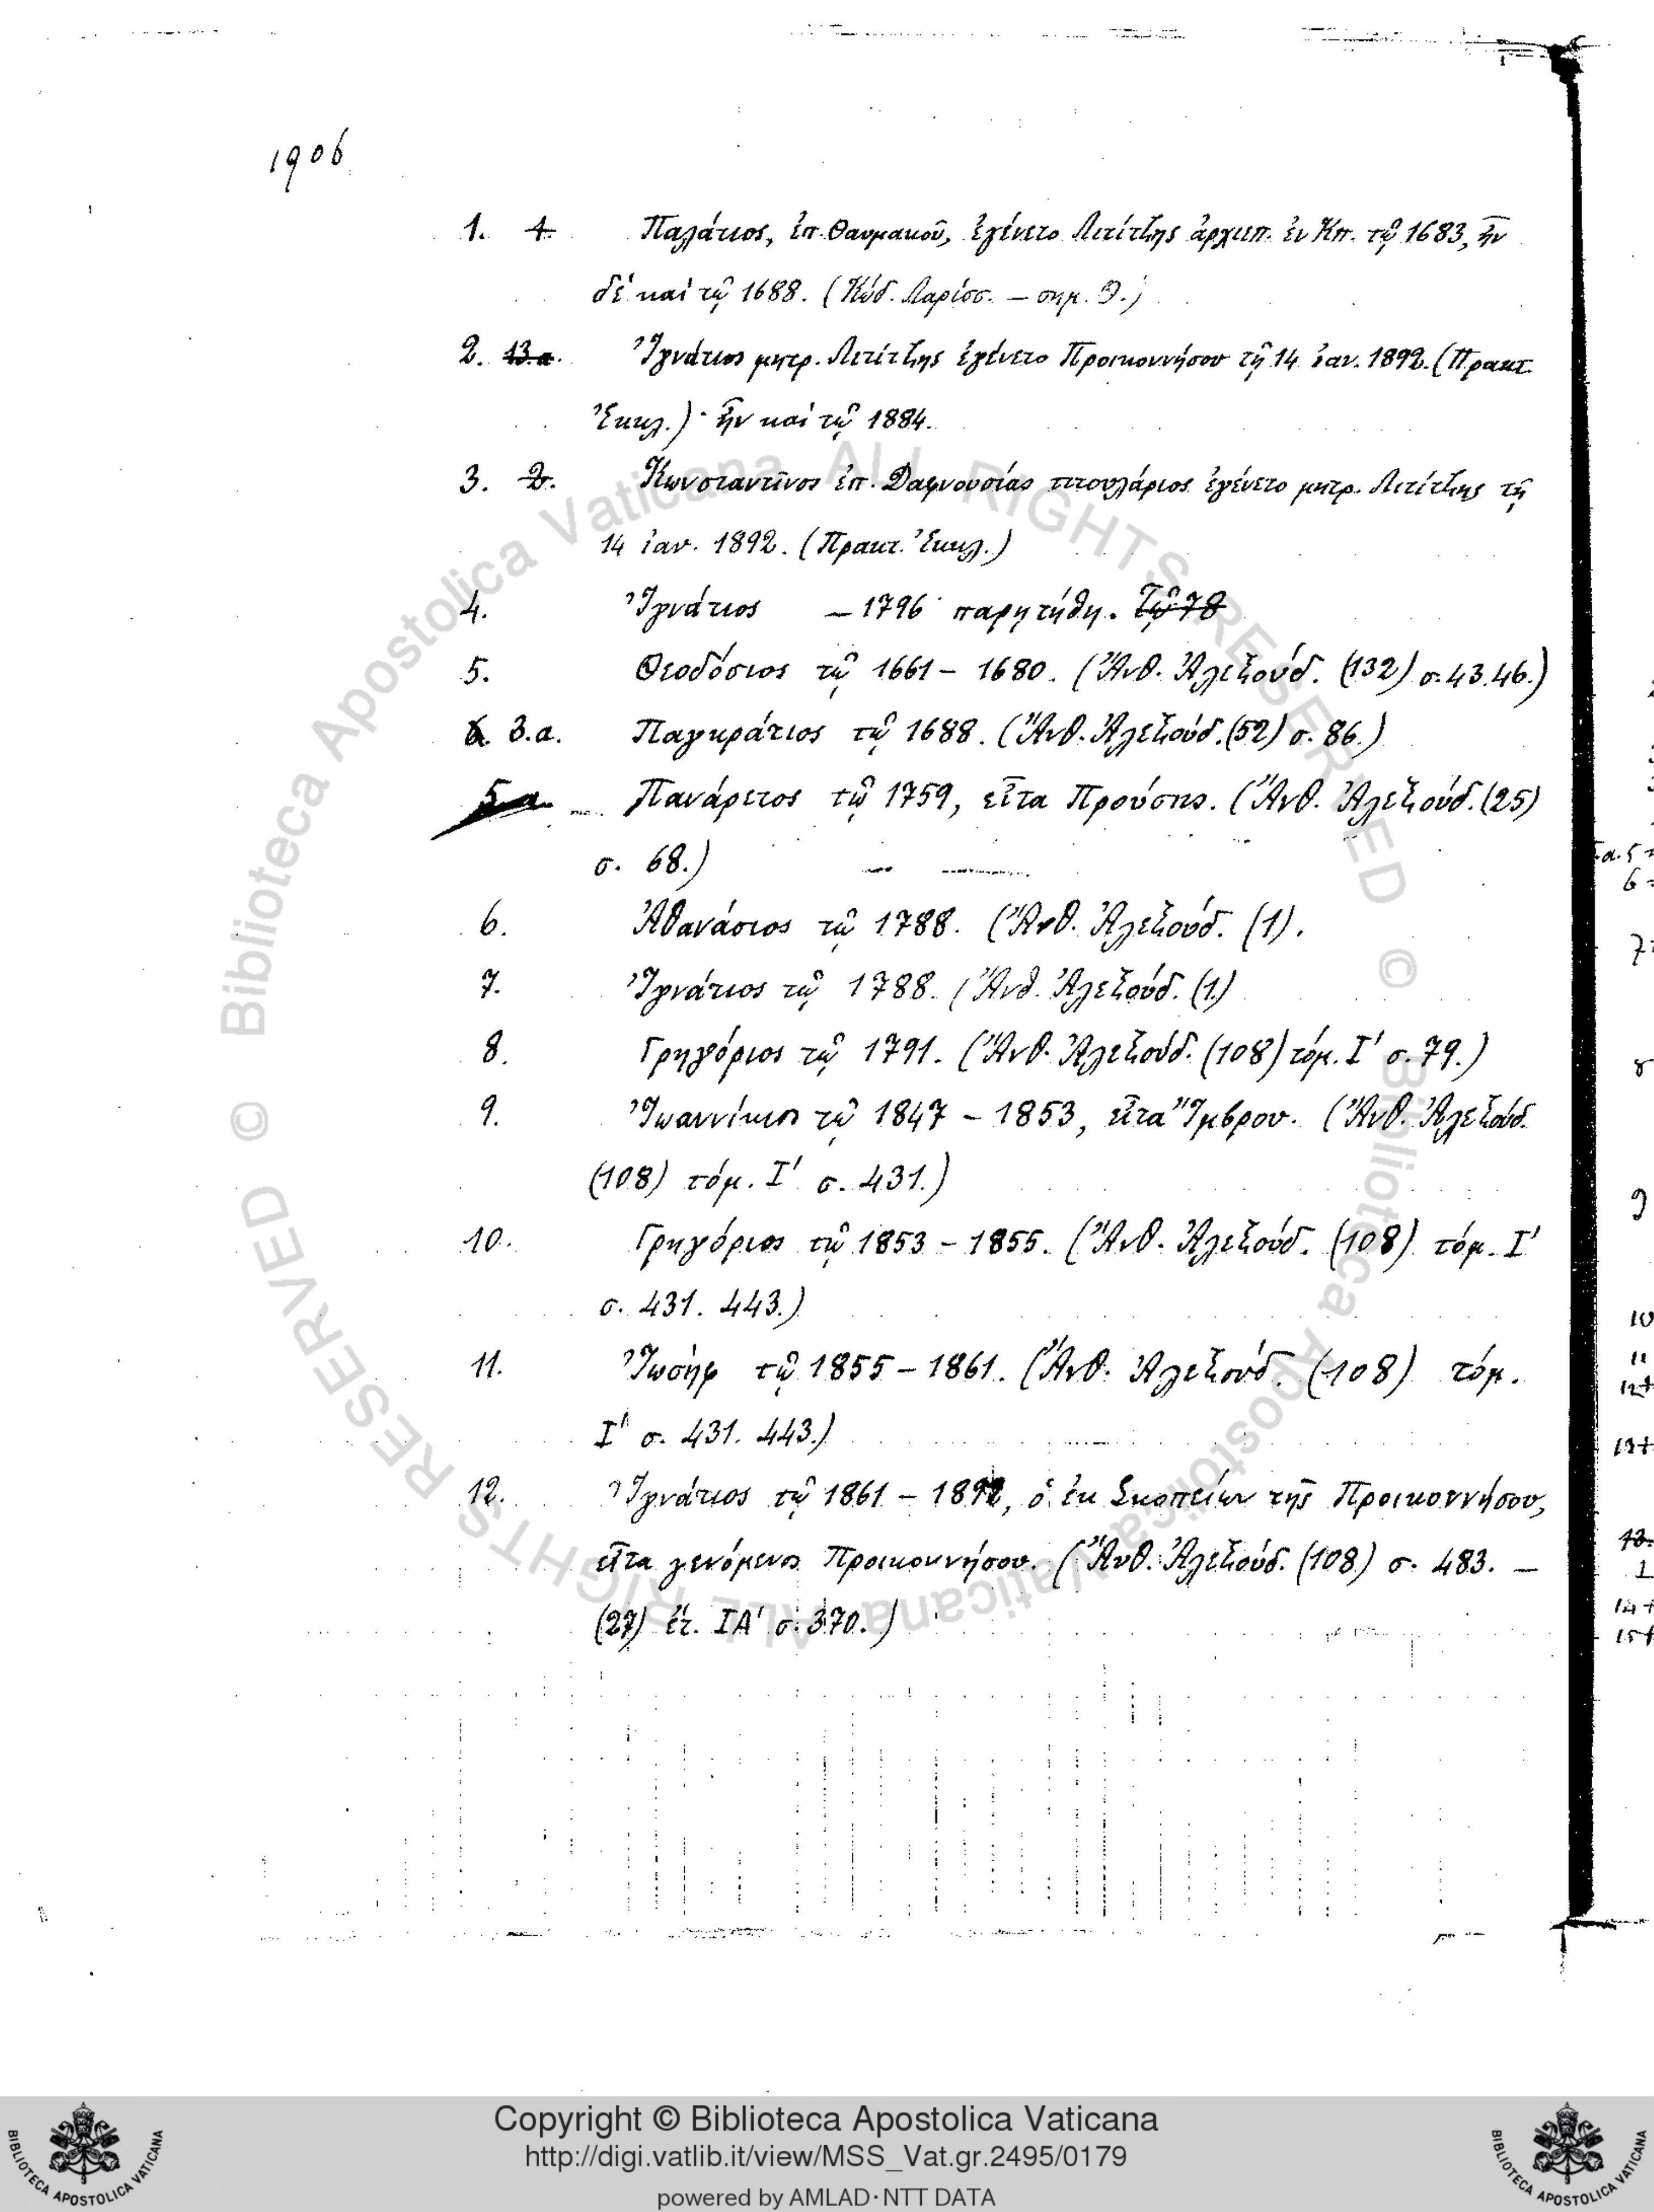 1906
1. 1. Παλάτιος, ἐπ. Θαυμακοῦ, ἐγένετο Λιτίτζης ἀρχιεπ. ἐν Κπ. τῷ 1683, ἦν
δὲ καὶ τῷ 1688. (Κώδ. Λαρίσσ. – σημ. Θ.)
2. 13.α. Ἰγνάτιος μητρ. Λιτίτζης ἐγένετο Προικοννήσου τῇ 14 ἰαν. 1892. (Πρακτ.
Ἐκκλ.) · ἦν καὶ τῷ 1884.
3. 2. Κωνσταντῖνος ἐπ. Δαφνουσίας τιτουλάριος ἐγένετο μητρ. Λιτίτζης τῇ
14 ἰαν. 1892. (Πρακτ. Ἐκκλ.)
4. Ἰγνάτιος – 1796 παρητήθη. Τῷ 78
5. Θεοδόσιος τῷ 1661 – 1680. (Ἄνθ. Ἀλεξούδ. (132) σ. 43.46.)
3.α. Παγκράτιος τῷ 1688. (Ἄνθ. Ἀλεξούδ. (52) σ. 86.)
5.α. Πανάρετος τῷ 1759, εἶτα Προύσης. (Ἄνθ. Ἀλεξούδ. (25)
σ. 68.)
6. Ἀθανάσιος τῷ 1788. (Ἄνθ. Ἀλεξούδ. (1).
7. Ἰγνάτιος τῷ 1788. (Ἄνθ. Ἀλεξούδ. (1.)
8. Γρηγόριος τῷ 1791. (Ἄνθ. Ἀλεξούδ. (108) τόμ. Ι' σ. 79.)
9. Ἰωαννίκιος τῷ 1847 – 1853, εἶτα Ἴμβρου. (Ἄνθ. Ἀλεξούδ.
(108) τόμ. Ι' σ. 431.)
10. Γρηγόριος τῷ 1853 – 1855. (Ἄνθ. Ἀλεξούδ. (108) τόμ. Ι'
σ. 431. 443.)
11. Ἰωσὴφ τῷ 1855 – 1861. (Ἄνθ. Ἀλεξούδ. (108) τόμ.
Ι' σ. 431. 443.)
12. Ἰγνάτιος τῷ 1861 – 1892, ὁ ἐκ Σκοπείων τῆς Προικοννήσου,
εἶτα γενόμενος Προικοννήσου. (Ἄνθ. Ἀλεξούδ. (108) σ. 483. –
(27) ἔτ. ΙΑ' σ. 370.)
© Biblioteca Apostolica Vaticana ALL RIGHTS RESERVED © Biblioteca Apostolica Vaticana ALL RIGHTS RESERVED
Copyright © Biblioteca Apostolica Vaticana
http://digi.vatlib.it/view/MSS_Vat.gr.2495/0179
powered by AMLAD·NTT DATA
BIBLIOTECA APOSTOLICA VATICANA
BIBLIOTECA APOSTOLICA VATICANA